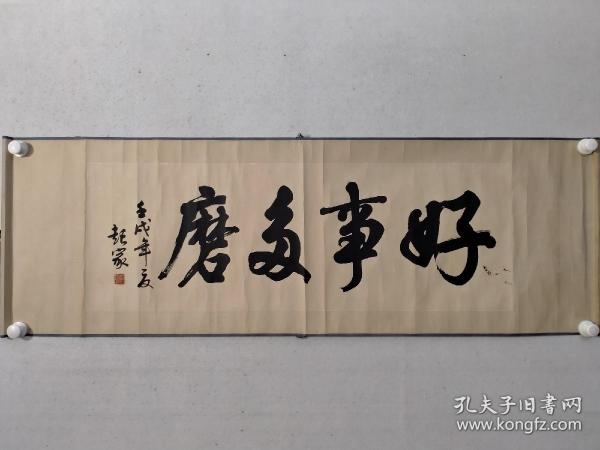 好事多磨
壬戌年夏
孔夫子旧书网
www.kongfz.com